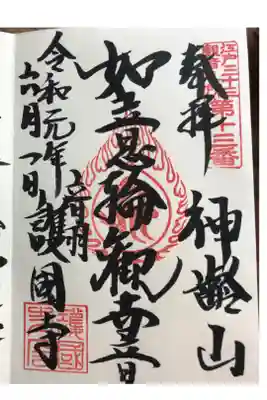 江戸三十三
観音札所
第十三番
奉拝
神齢山
如意輪観世音
令和元年
六月一日
音羽
護國寺